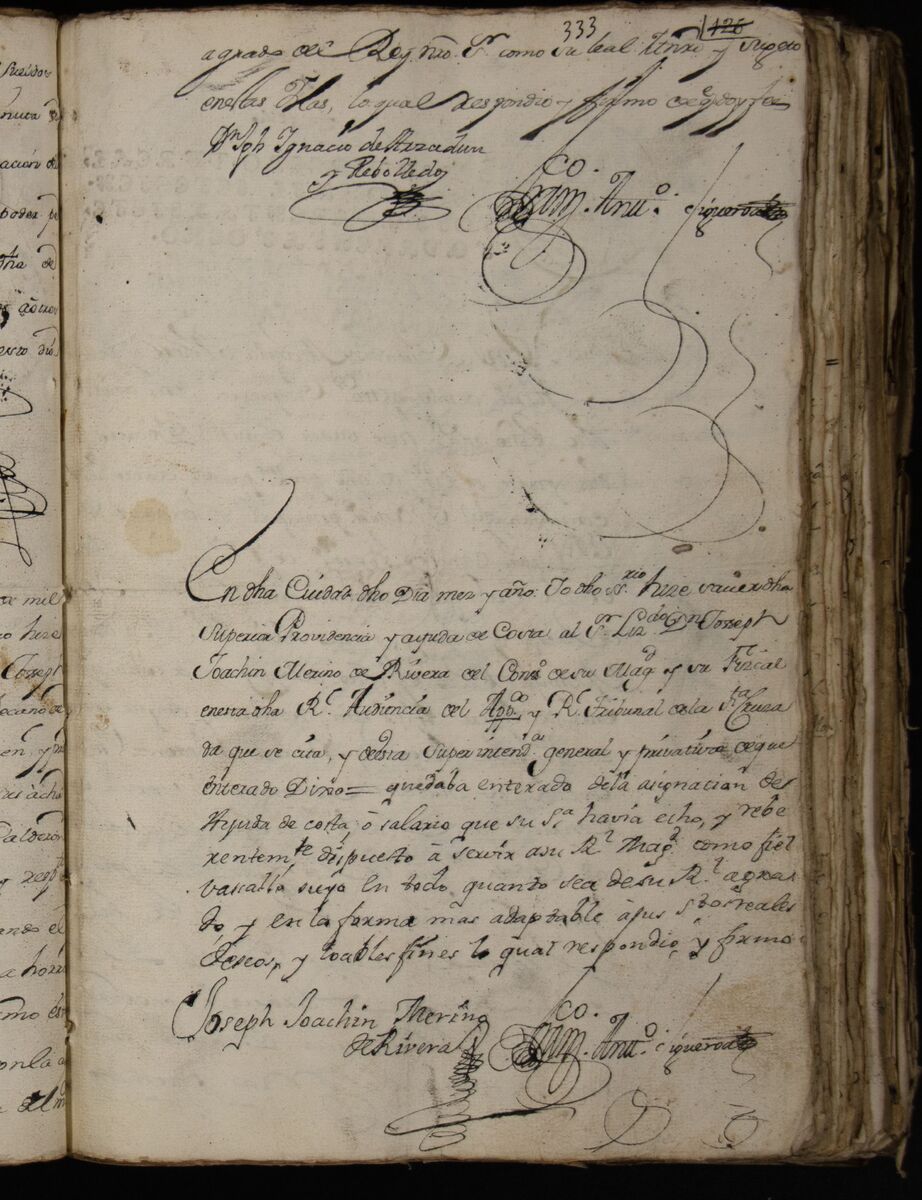 333 126
agrado del Rey nro. Sr como su leal Mnro. y sugeto
en estas Yslas, lo qual respondio y firmo de q doy fee
Dn Jph Ygnacio de Arzadun
y Rebolledo
Franco. Antto. Figueroa
En dha Ciudad dho Dia mes y año: Yo dho Ssrio hize saver dha
Superior Providencia y ayuda de Costa al Sr. Lizdo. Dn Joseph
Joachin Merino de Rivera del Conso. de su Magd y su Fiscal
en esta dha Rl. Audiencia del Appdo. y Rl. Tribunal de la Sta Cruza
da que se cita, y desta Superintenda. general y privativa de que
enterado Dixo = quedaba enterado de la asignacion del
Ayuda de costa, ô salario que su Sa. havia echo, y rebe
rentemte. dispuesto â servir a su Rl. Magd. como fiel
vasallo suyo en todo quanto sea de su Rl. agra
do y en la forma mas adaptable â sus Stos reales
deseos, y loables fines lo qual respondio, y firmo
Joseph Joachin Merino
de Rivera
Franco. Antto. Figueroa